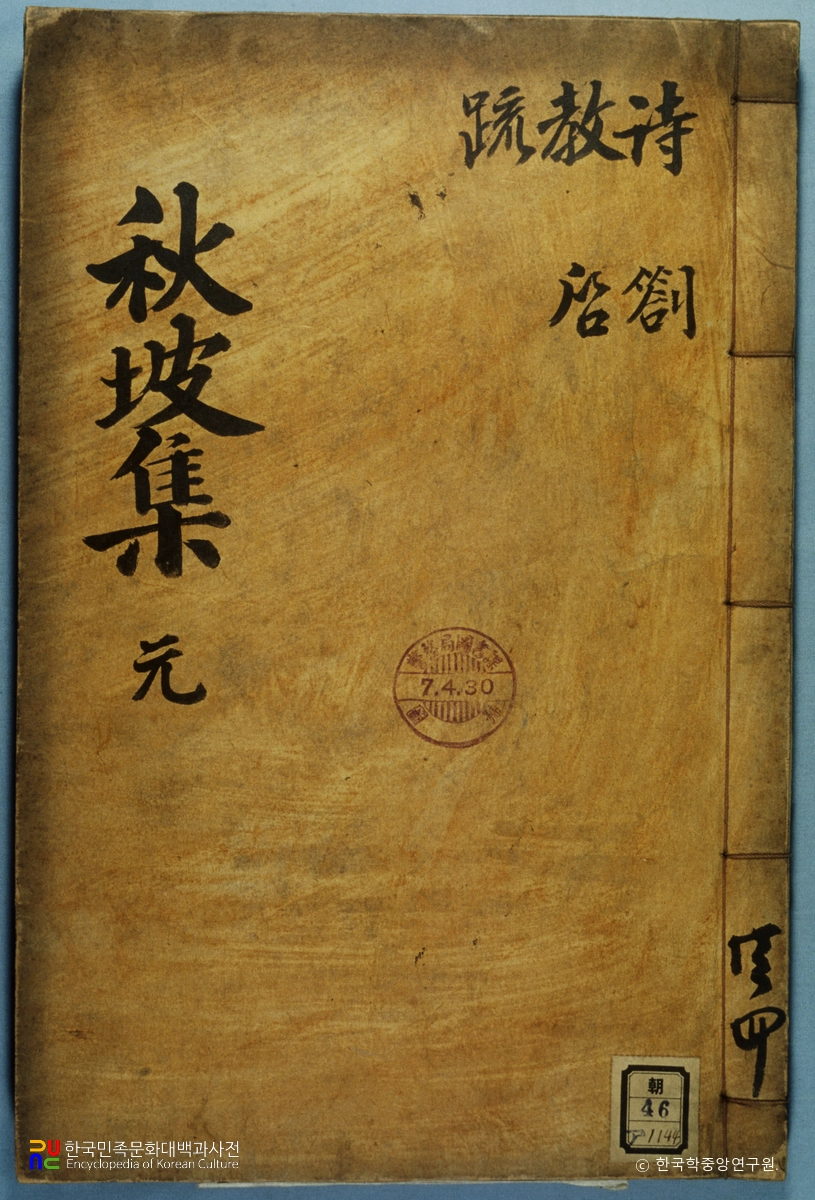 詩教疏
箚啓
秋坡集 元
7.4.30
共四
朝
46
1144
한국민족문화대백과사전
Encyclopedia of Korean Culture
© 한국학중앙연구원